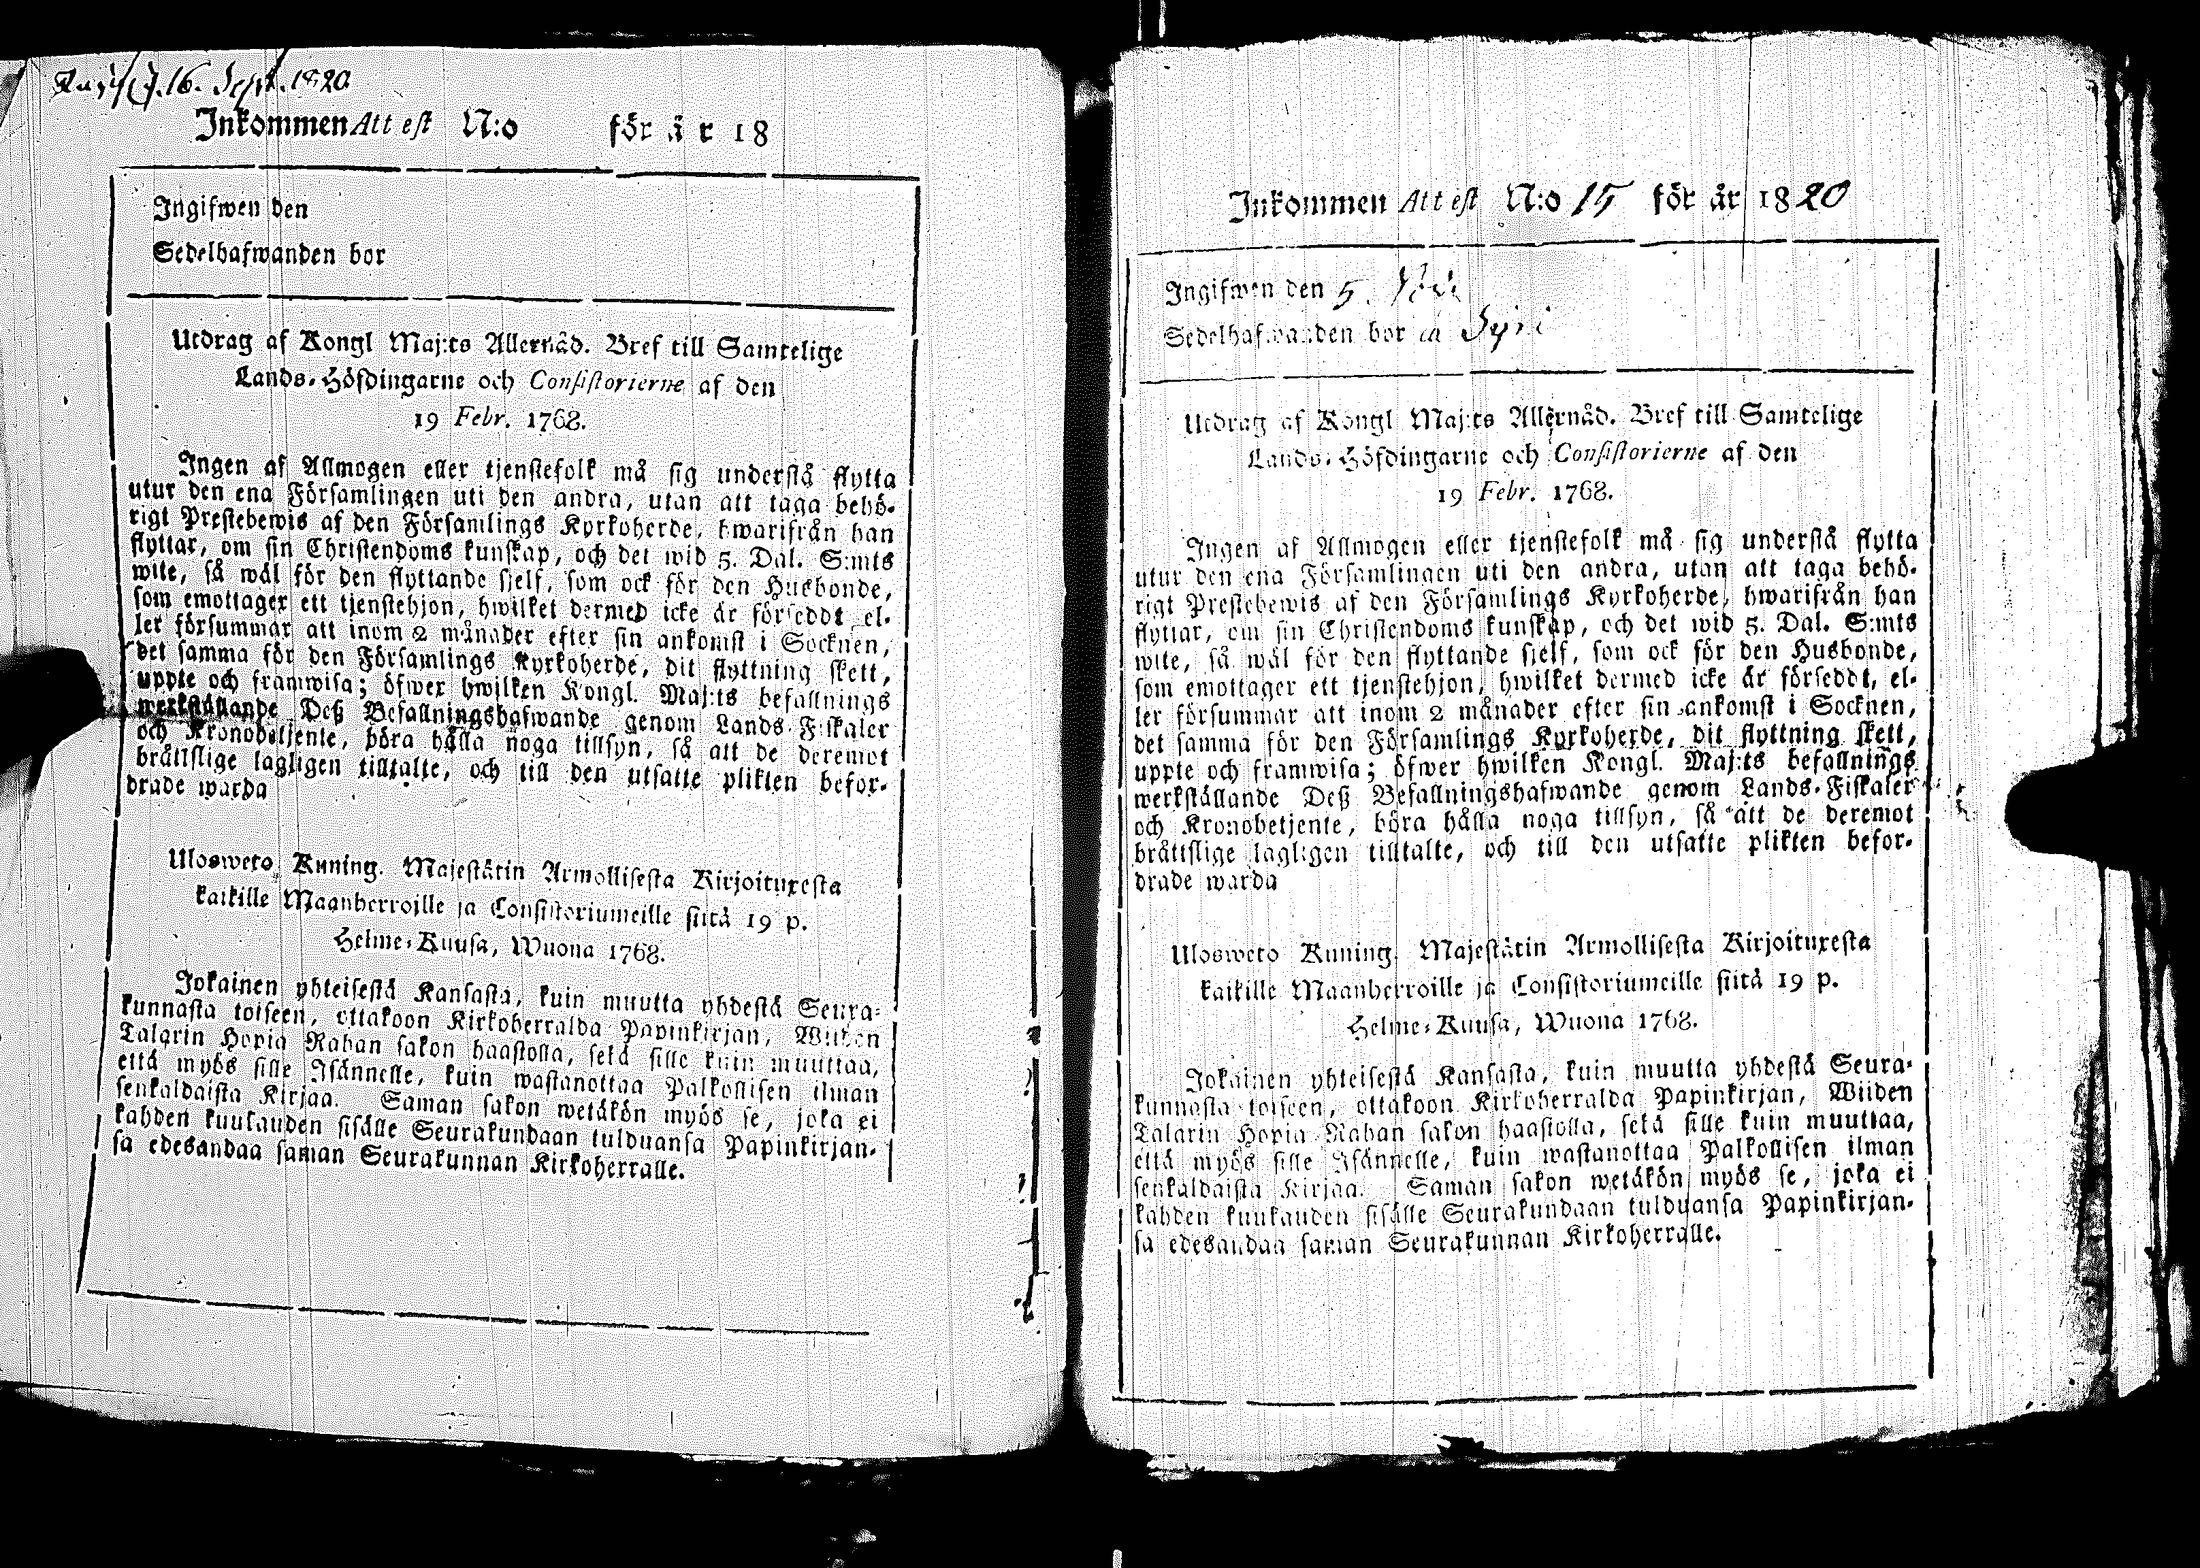 16. Sept. 1820
Inkommen Att est N:o för år 18
Ingifwen den
Sedelhafwanden bor
Utdrag af Kongl Maj:ts Allernåd. Bref till Samtelige
Lands-Höfdingarne och Consistorierne af den
19 Febr. 1768.
Ingen af Allmogen eller tjenstefolk må sig understå flytta
utur den ena Församlingen uti den andra, utan att taga behö-
rigt Prestebewis af den Församlings Kyrkoherde, hwarifrån han
flyttar, om sin Christendoms kunskap, och det wid 5. Dal. S:mts
wite, så wäl för den flyttande sjelf, som ock för den Husbonde,
som emottager ett tjenstehjon, hwilket dermed icke är förseddt, el-
ler försummar att inom 2 månader efter sin ankomst i Socknen,
det samma för den Församlings Kyrkoherde, dit flyttning skett,
uppte och framwisa; öfwer hwilken Kongl. Maj:ts befallnings
werkställande Deß Befallningshafwande genom Lands-Fiskaler
och Kronobetjente, böra hålla noga tillsyn, så att de deremot
bråttslige lagligen tilltalte, och till den utsatte plikten befor-
drade warda
Ulosweto Kuning. Majestätin Armollisesta Kirjoituxesta
kaikille Maanherroille ja Consistoriumeille siitä 19 p.
Helme-Kuusa, Wuona 1768.
Jokainen yhteisestä Kansasta, kuin muutta yhdestä Seura-
kunnasta toiseen, ottakoon Kirkoherralda Papinkirjan, Wiiden
Talarin Hopia Rahan sakon haastolla, sekä sille kuin muuttaa,
että myös sille Isännelle, kuin wastanottaa Palkollisen ilman
senkaldaista Kirjaa. Saman sakon wetäkön myös se, joka ei
kahden kuukauden sisälle Seurakundaan tulduansa Papinkirjan-
sa edesandaa saman Seurakunnan Kirkoherralle.
Inkommen Att est N:o 15 för år 1820
Ingifwen den 5.
Sedelhafwanden bor
Utdrag af Kongl Maj:ts Allernåd. Bref till Samtelige
Lands-Höfdingarne och Consistorierne af den
19 Febr. 1768.
Ingen af Allmogen eller tjenstefolk må sig understå flytta
utur den ena Församlingen uti den andra, utan att taga behö-
rigt Prestebewis af den Församlings Kyrkoherde, hwarifrån han
flyttar, om sin Christendoms kunskap, och det wid 5. Dal. S:mts
wite, så wäl för den flyttande sjelf, som ock för den Husbonde,
som emottager ett tjenstehjon, hwilket dermed icke är förseddt, el-
ler försummar att inom 2 månader efter sin ankomst i Socknen,
det samma för den Församlings Kyrkoherde, dit flyttning skett,
uppte och framwisa; öfwer hwilken Kongl. Maj:ts befallnings
werkställande Deß Befallningshafwande genom Lands-Fiskaler
och Kronobetjente, böra hålla noga tillsyn, så att de deremot
bråttslige lagligen tilltalte, och till den utsatte plikten befor-
drade warda
Ulosweto Kuning. Majestätin Armollisesta Kirjoituxesta
kaikille Maanherroille ja Consistoriumeille siitä 19 p.
Helme-Kuusa, Wuona 1768.
Jokainen yhteisestä Kansasta, kuin muutta yhdestä Seura-
kunnasta toiseen, ottakoon Kirkoherralda Papinkirjan, Wiiden
Talarin Hopia Rahan sakon haastolla, sekä sille kuin muuttaa,
että myös sille Isännelle, kuin wastanottaa Palkollisen ilman
senkaldaista Kirjaa. Saman sakon wetäkön myös se, joka ei
kahden kuukauden sisälle Seurakundaan tulduansa Papinkirjan-
sa edesandaa saman Seurakunnan Kirkoherralle.